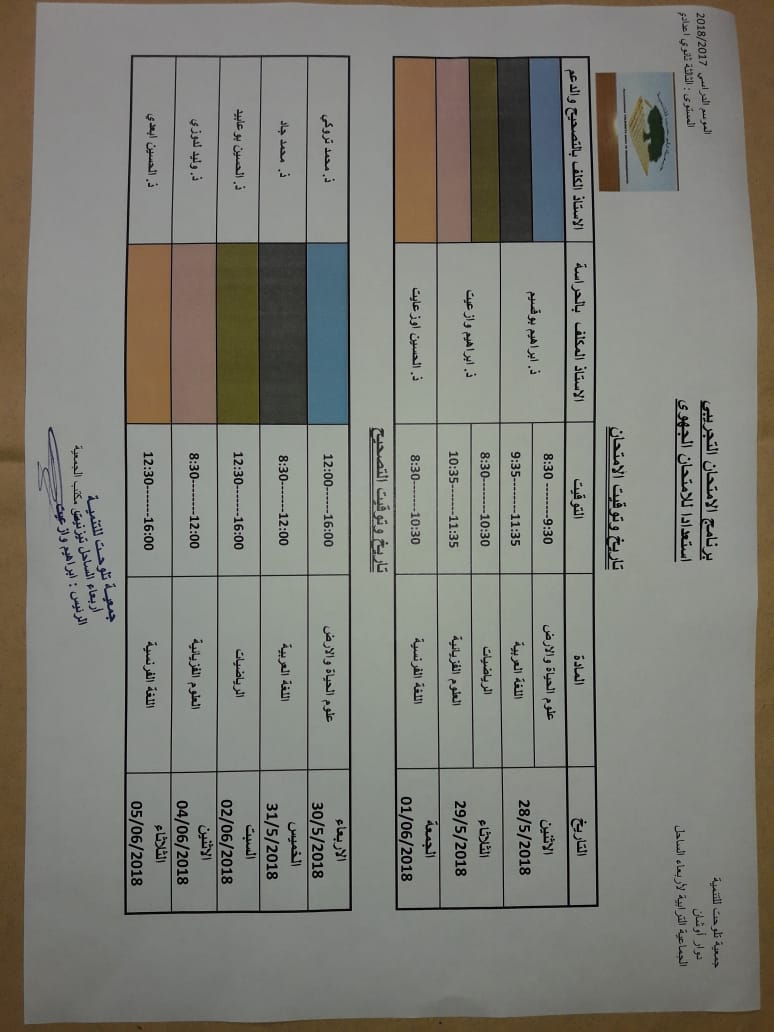 جمعية تلوحت للتنمية
دوار أوشان
الجماعية الترابية لأربعاء الساحل
الموسم الدراسي 2018/2017
المستوى : الثالثة ثانوي اعدادي
برنامج الامتحان التجريبي
استعدادا للامتحان الجهوي
تاريخ وتوقيت الامتحان
التاريخ المادة التوقيت الاستاذ المكلف بالحراسة الاستاذ الكلف بالتصحيح والدعم
الاثنين 28/5/2018 علوم الحياة والارض 8:30--------9:30 ذ. ابراهيم بوقسيم
اللغة العربية 9:35--------11:35
الثلاثاء 29/5/2018 الرياضيات 8:30--------10:30 ذ. ابراهيم وازعيت
العلوم الفزيائية 10:35--------11:35
الجمعة 01/06/2018 اللغة الفرنسية 8:30--------10:30 ذ. الحسين اوزعايت
تاريخ وتوقيت التصحيح
الاربعاء 30/5/2018 علوم الحياة والارض 12:00-------16:00 ذ. محمد تروكي
الخميس 31/5/2018 اللغة العربية 8:30-------12:00 ذ. محمد جاد
السبت 02/06/2018 الرياضيات 12:30--------16:00 ذ. الحسين بوعابيد
الاثنين 04/06/2018 العلوم الفزيائية 8:30--------12:00 ذ. وليد لدوزي
الثلاثاء 05/06/2018 اللغة الفرنسية 12:30-------16:00 ذ. الحسين ابعدي
مكتب الجمعية
جمعية تلوحت للتنمية
أربعاء الساحل تيزنيت
الرئيس : ابراهيم وازعيت